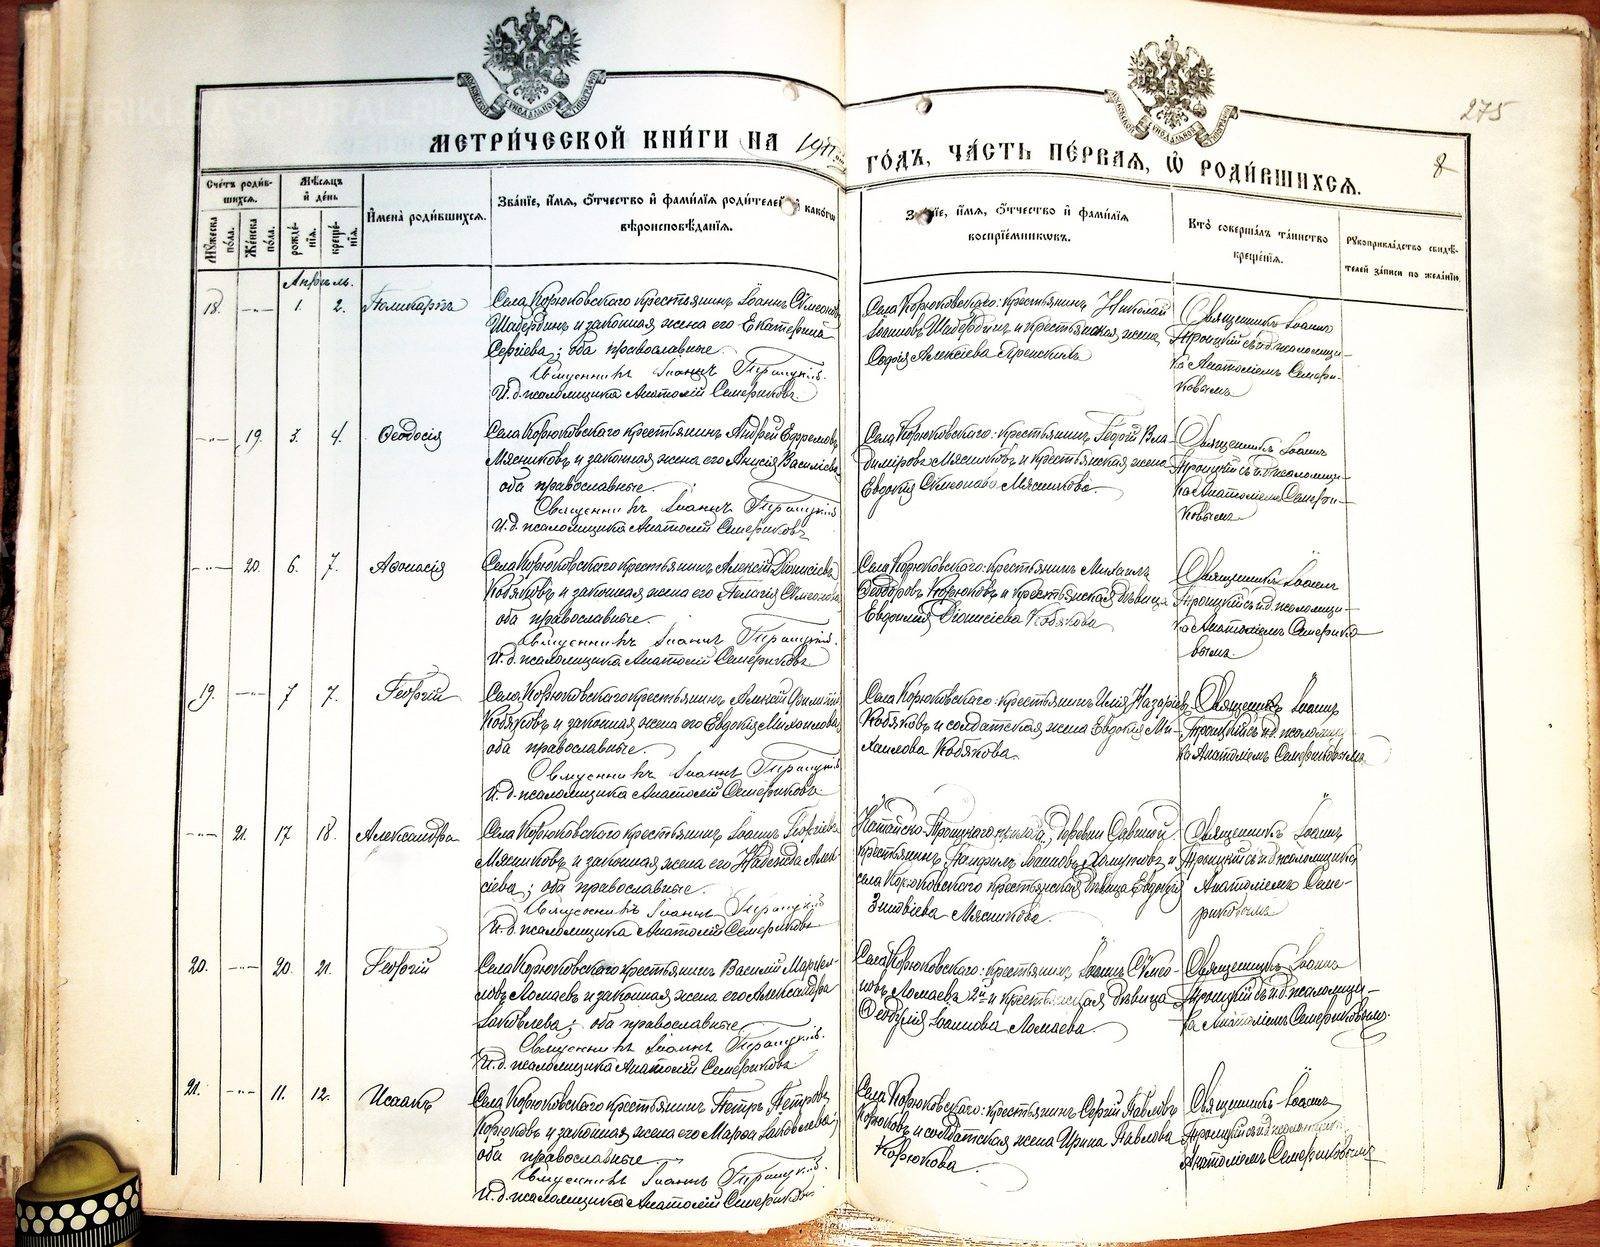 275
МЕТРИ́ЧЕСКОЙ КНИ́ГИ НА
ГО́ДЪ, ЧА́СТЬ ПЕ́РВАЯ, Ѡ РОДИ́ВШИХСЯ.
8
Сче́тъ роди́в-
шихся.
Мѣ́сяцъ
и де́нь
Мꙋжеска по́ла.
Же́нска по́ла.
рожде́-
нїя.
креще́-
нїя.
И҆мена̀ роди́вшихся.
Зва́нїе, и҆́мя, ѻ҆́тчество и҆ фами́лїя роди́телей и҆ како́гѡ
вѣроисповѣ́данїя.
Зва́нїе, и҆́мя, ѻ҆́тчество и҆ фами́лїя
воспрїе́мникѡвъ.
Кто̀ соверша́лъ та́инство
креще́нїя.
Рꙋкоприкла́дство свидѣ́-
телей за́писи по жела́нїю
Апрѣль.
18. 1. 2. Поликарпъ
Села Корюковскаго крестьянинъ Іоаннъ Сѵмеоновъ
Шабердинъ и законная жена его Екатерина
Сергіева; оба православные.
Священникъ Іоаннъ Троицкій.
И. д. псаломщика Анатолій Семериковъ.
Села Корюковскаго: крестьянинъ Николай
Іоанновъ Шабердинъ и крестьянская жена
Софія Алексіева
Священникъ Іоаннъ
Троицкій съ и. д. псаломщи-
ка Анатоліемъ Семери-
ковымъ
19. 3. 4. Ѳеодосія
Села Корюковскаго крестьянинъ Андрей Ефремовъ
Мясниковъ и законная жена его Анисія Василіева
оба православные.
Священникъ Іоаннъ Троицкій
И. д. псаломщика Анатолій Семериковъ
Села Корюковскаго: крестьянинъ Георгій Вла-
диміровъ Мясниковъ и крестьянская жена
Евдокія Сѵмеонова Мясникова.
Священникъ Іоаннъ
Троицкій съ и. д. псаломщи-
ка Анатоліемъ Семери-
ковымъ
20. 6. 7. Аѳанасія
Села Корюковскаго крестьянинъ Алексій Діонисіевъ
Кобяковъ и законная жена его Пелагія Сѵмеонова
оба православные.
Священникъ Іоаннъ Троицкій.
И. д. псаломщика Анатолій Семериковъ
Села Корюковскаго: крестьянинъ Михаилъ
Ѳеодоровъ Корюковъ и крестьянская дѣвица
Евдокія Діонисіева Кобякова
Священникъ Іоаннъ
Троицкій съ и. д. псаломщи-
ка Анатоліемъ Семерико-
вымъ.
19. 7 7. Георгій
Села Корюковскаго крестьянинъ Алексій
Кобяковъ и законная жена его Евдокія Михаилова
оба православные.
Священникъ Іоаннъ Троицкій
И. д. псаломщика Анатолій Семериковъ
Села Корюковскаго: крестьянинъ Илія Назаріевъ
Кобяковъ и солдатская жена Евдокія Ми-
хаилова Кобякова.
Священникъ Іоаннъ
Троицкій съ и. д. псаломщи-
ка Анатоліемъ Семериковымъ
21. 17 18. Александра
Села Корюковскаго крестьянинъ Іоаннъ Георгіевъ
Мясниковъ и законная жена его Надежда Алек-
сіева; оба православные.
Священникъ Іоаннъ Троицкій
И. д. псаломщика Анатолій Семериковъ
Катайско-Троицкаго прихода, деревни Савиной
крестьянинъ Панфилъ Іоанновъ и
села Корюковскаго крестьянская дѣвица Евдокія
Зиновіева Мясникова.
Священникъ Іоаннъ
Троицкій съ и. д. псаломщика
Анатоліемъ Семе-
риковымъ
20. 20. 21. Георгій
Села Корюковскаго крестьянинъ Василій Маркел-
ловъ Ломаевъ и законная жена его Александра
Іаковлева; оба православные
Священникъ Іоаннъ Троицкій.
И. д. псаломщика Анатолій Семериковъ
Села Корюковскаго: крестьянинъ Іоаннъ Сѵмео-
новъ Ломаевъ 2й и крестьянская дѣвица
Іоаннова Ломаева
Священникъ Іоаннъ
Троицкій съ и. д. псаломщи-
ка Анатоліемъ Семериковымъ.
21. 11. 12. Исаакъ
Села Корюковскаго крестьянинъ Петръ Петровъ
Корюковъ и законная жена его Марѳа Іаковлева;
оба православные.
Священникъ Іоаннъ Троицкій.
И. д. псаломщика Анатолій Семериковъ
Села Корюковскаго: крестьянинъ Сергій Павловъ
Корюковъ и солдатская жена Ирина Павлова
Корюкова.
Священникъ Іоаннъ
Троицкій съ и. д. псаломщика
Анатоліемъ Семериковымъ